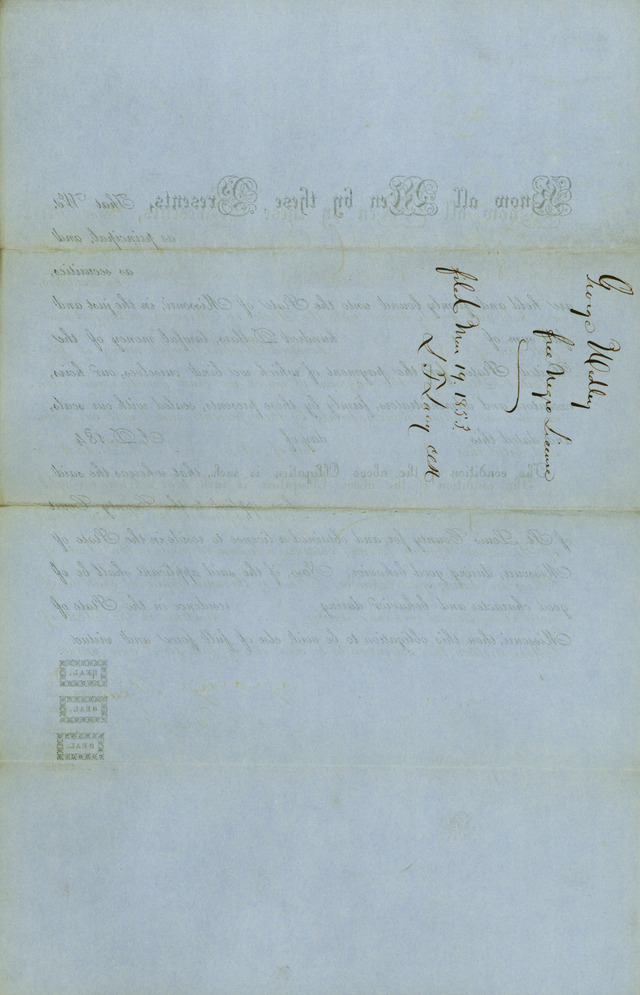 George Medley
free Negro License
filed Mar 19. 1853.
Know all Men by these Presents, That We
as principal, and
as securities,
are held and firmly bound unto the State of Missouri, in the just and
hundred Dollars, lawful money of the
the payment of which we bind ourselves, our heirs,
firmly by these presents, sealed with our seals,
this day of A. D. 184
The condition of the above Obligation is such, that whereas the said
of St. Louis County for, and obtained a license to reside in the State of
Missouri, during good behavior. Now if the said applicant shall be of
good character and behavior during residence in the State of
Missouri, then this obligation to be void, else of full force and virtue
SEAL.
SEAL.
SEAL.